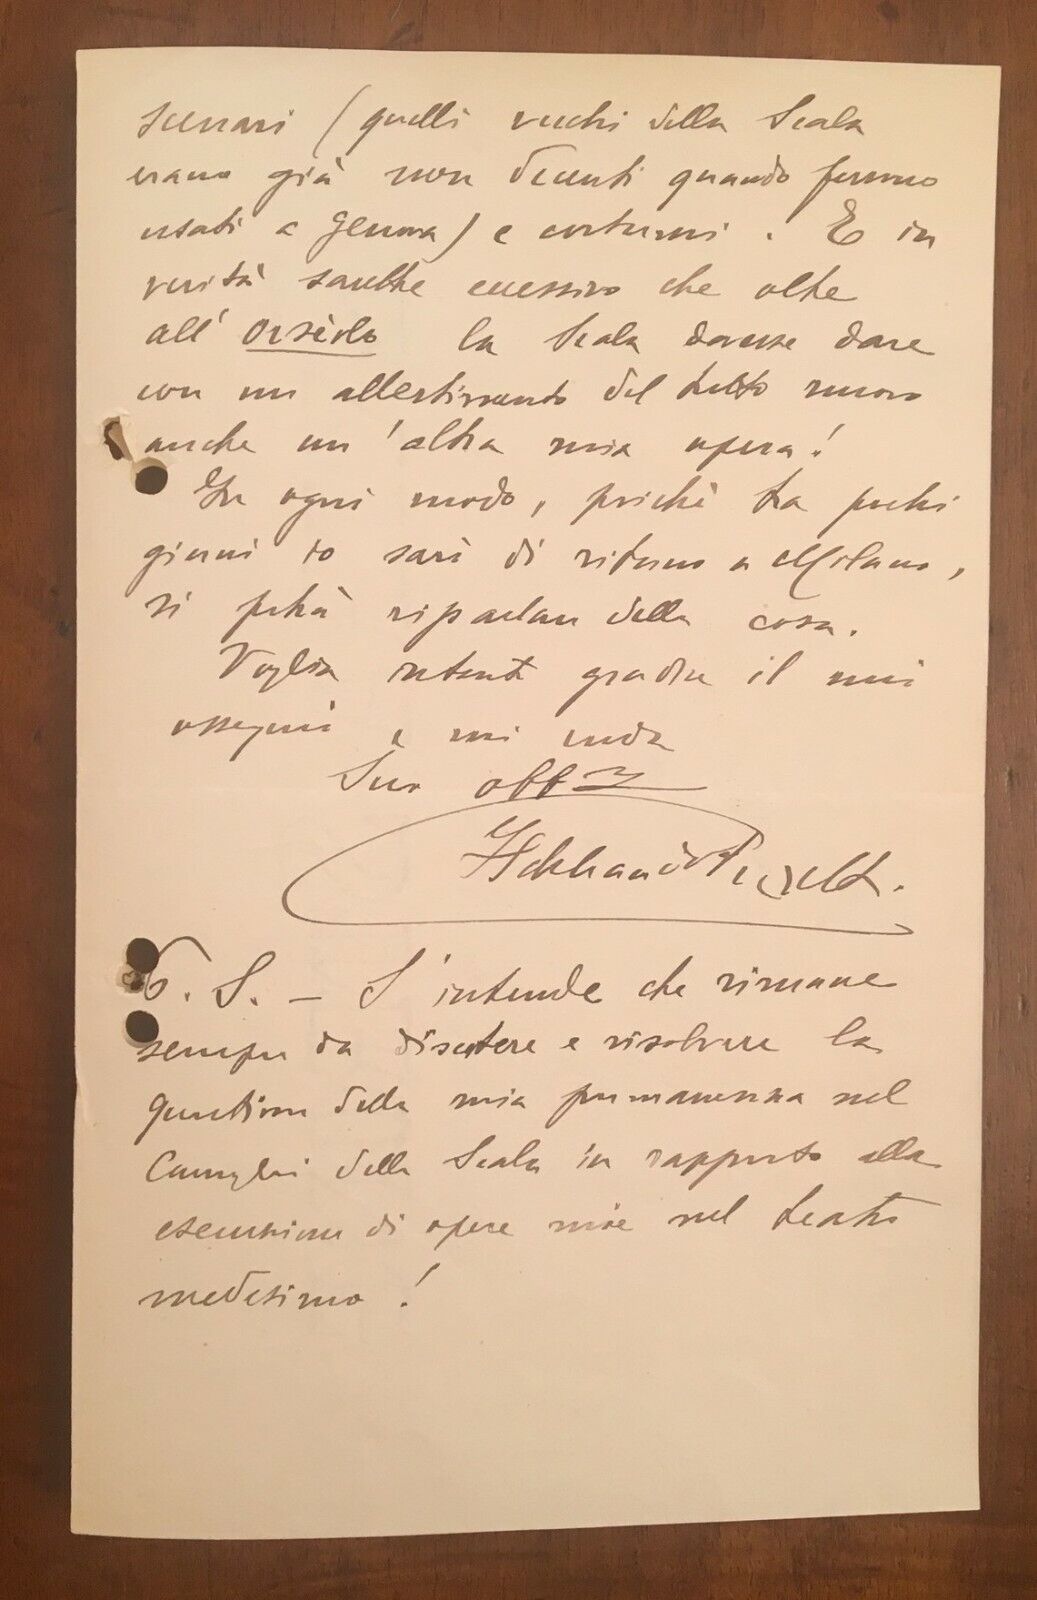 scenari (quelli vecchi della Scala
erano già non decenti quando furono
usati a Genova) e costumi. E in
verità sarebbe eccessivo che oltre
all'Orsèolo la Scala dovesse dare
con un allestimento del tutto nuovo
anche un'altra mia opera!
In ogni modo, poichè tra pochi
giorni io sarò di ritorno a Milano,
si potrà riparlare della cosa.
Voglia intanto gradire i miei
ossequi e mi creda
Suo obb.mo
Ildebrando Pizzetti.
P. S. – S'intende che rimane
sempre da discutere e risolvere la
questione della mia permanenza nel
Consiglio della Scala in rapporto alla
esecuzione di opere mie nel teatro
medesimo!